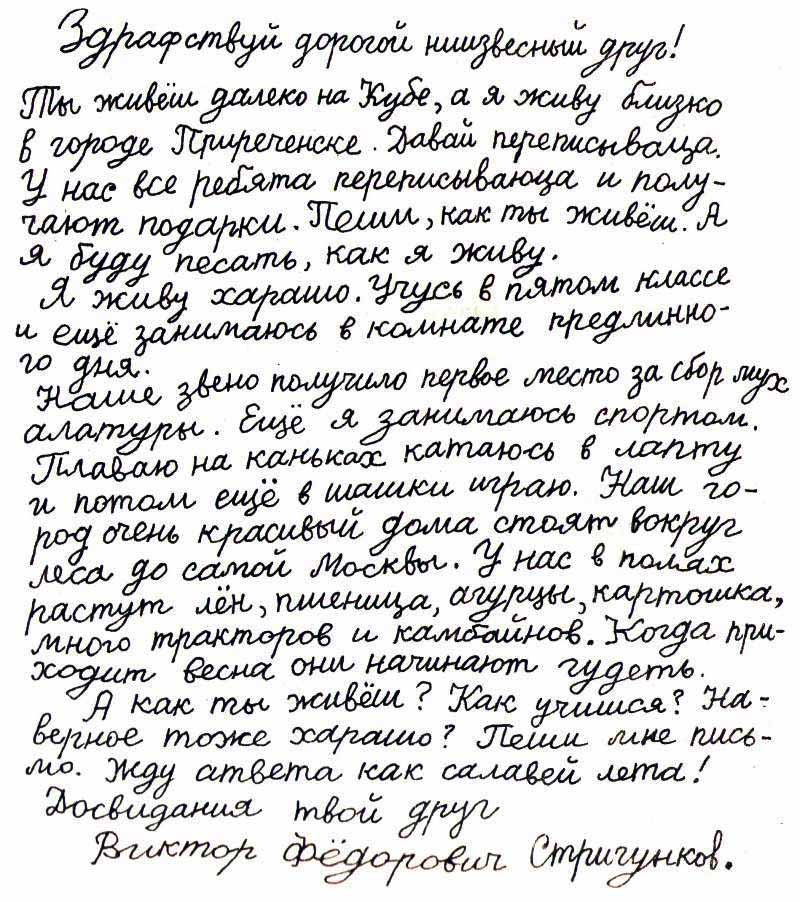 Здрафствуй дорогой ниизвесный друг!
Ты живёш далеко на Кубе, а я живу близко
в городе Приреченске. Давай переписываца.
У нас все ребята переписываюца и полу-
чают подарки. Пеши, как ты живёш. А
я буду песать, как я живу.
Я живу харашо. Учусь в пятом классе
и ещё занимаюсь в комнате предлинно-
го дня.
Наше звено получило первое место за сбор мух
алатуры. Ещё я занимаюсь спортом.
Плаваю на каньках катаюсь в лапту
и потом ещё в шашки играю. Наш го-
род очень красивый дома стоят вокруг
леса до самой Москвы. У нас в полях
растут лён, пшеница, агурцы, картошка,
много тракторов и камбайнов. Когда при-
ходит весна они начинают гудеть.
А как ты живёш? Как учишся? На-
верное тоже харашо? Пеши мне пись-
мо. Жду атвета как салавей лета!
Досвидания твой друг
Виктор Фёдорович Стригунков.